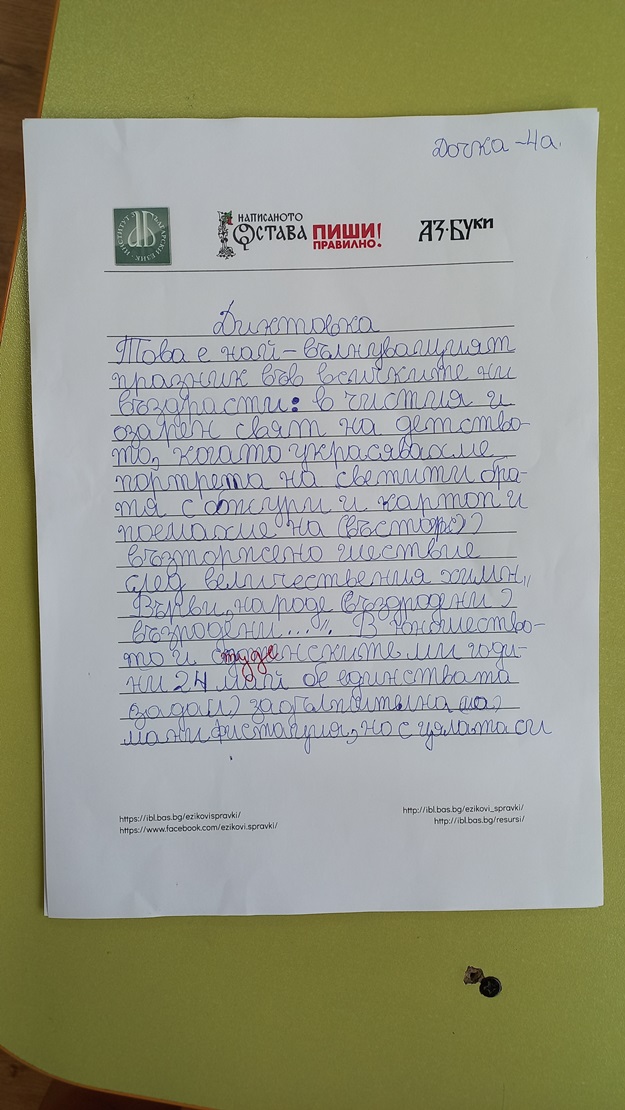 Дочка - 4а.
ИНСТИТУТ ЗА БЪЛГАРСКИ ЕЗИК
НАПИСАНОТО
ОСТАВА
ПИШИ!
ПРАВИЛНО!
АЗ·БУКИ
Диктовка
Това е най-вълнуващият
празник във всичките ни
въздрасти: в чистия и
озарен свят на детство-
то, когато украсявахме
портрета на светити бра-
тя с божури и картоп и
поемахме на (въсторж)
възторжено шествие
след величествения химн „
Върви, народе (въздродени)
възродени...“. В юношество-
то и студенските ми годи-
ни 24 май бе единствата
(задал) задължителна (ма)
манифистация, но с цялата си
https://ibl.bas.bg/ezikovispravki/
https://www.facebook.com/ezikovi.spravki/
http://ibl.bas.bg/ezikovi_spravki/
http://ibl.bas.bg/resursi/